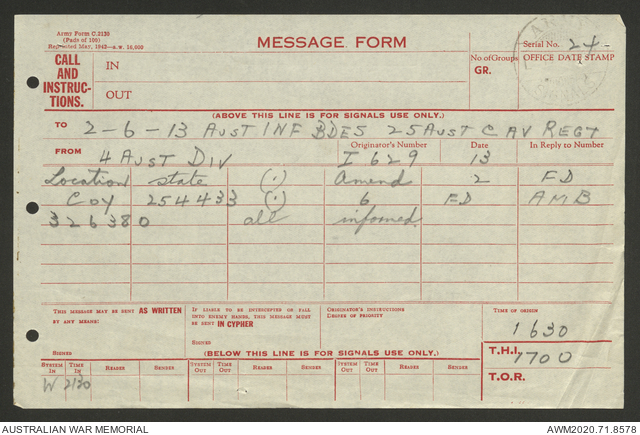 Army Form C.2130
(Pads of 100)
Reprinted May, 1942—a.w. 10,000
MESSAGE FORM
Serial No. 24
CALL AND INSTRUC-TIONS.
IN
OUT
No. of Groups
GR.
OFFICE DATE STAMP
(ABOVE THIS LINE IS FOR SIGNALS USE ONLY.)
TO 2-6-13 AUST INF BDES 25 AUST CAV REGT
FROM 4 AUST DIV
Originator's Number I 629
Date 13
In Reply to Number
Location state (.) Amend 2 FD
COY 254433 (.) 6 FD AMB
326380 all informed.
THIS MESSAGE MAY BE SENT AS WRITTEN BY ANY MEANS:
SIGNED
IF LIABLE TO BE INTERCEPTED OR FALL INTO ENEMY HANDS, THIS MESSAGE MUST BE SENT IN CYPHER
SIGNED
ORIGINATOR'S INSTRUCTIONS
DEGREE OF PRIORITY
TIME OF ORIGIN
1630
(BELOW THIS LINE IS FOR SIGNALS USE ONLY.)
T.H.I. 1700
T.O.R.
SYSTEM IN TIME IN READER SENDER SYSTEM OUT TIME OUT READER SENDER SYSTEM OUT TIME OUT READER SENDER
W 2130
AUSTRALIAN WAR MEMORIAL
AWM2020.71.8578